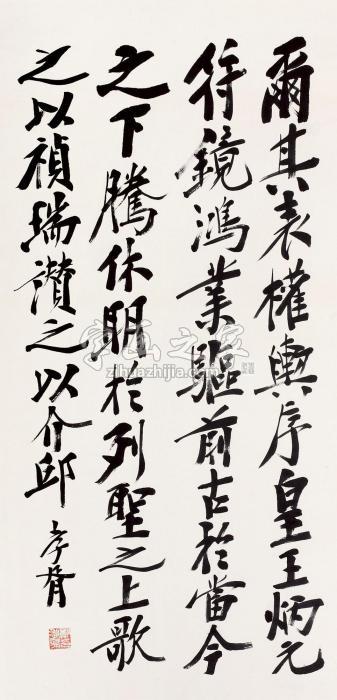 爾其表權輿序皇王炳元
符鏡鴻業驅前古於當今
之下騰休明於列聖之上歌
之以禎瑞讃之以介邱
孝胥
字画之家
zihuazhijia.com